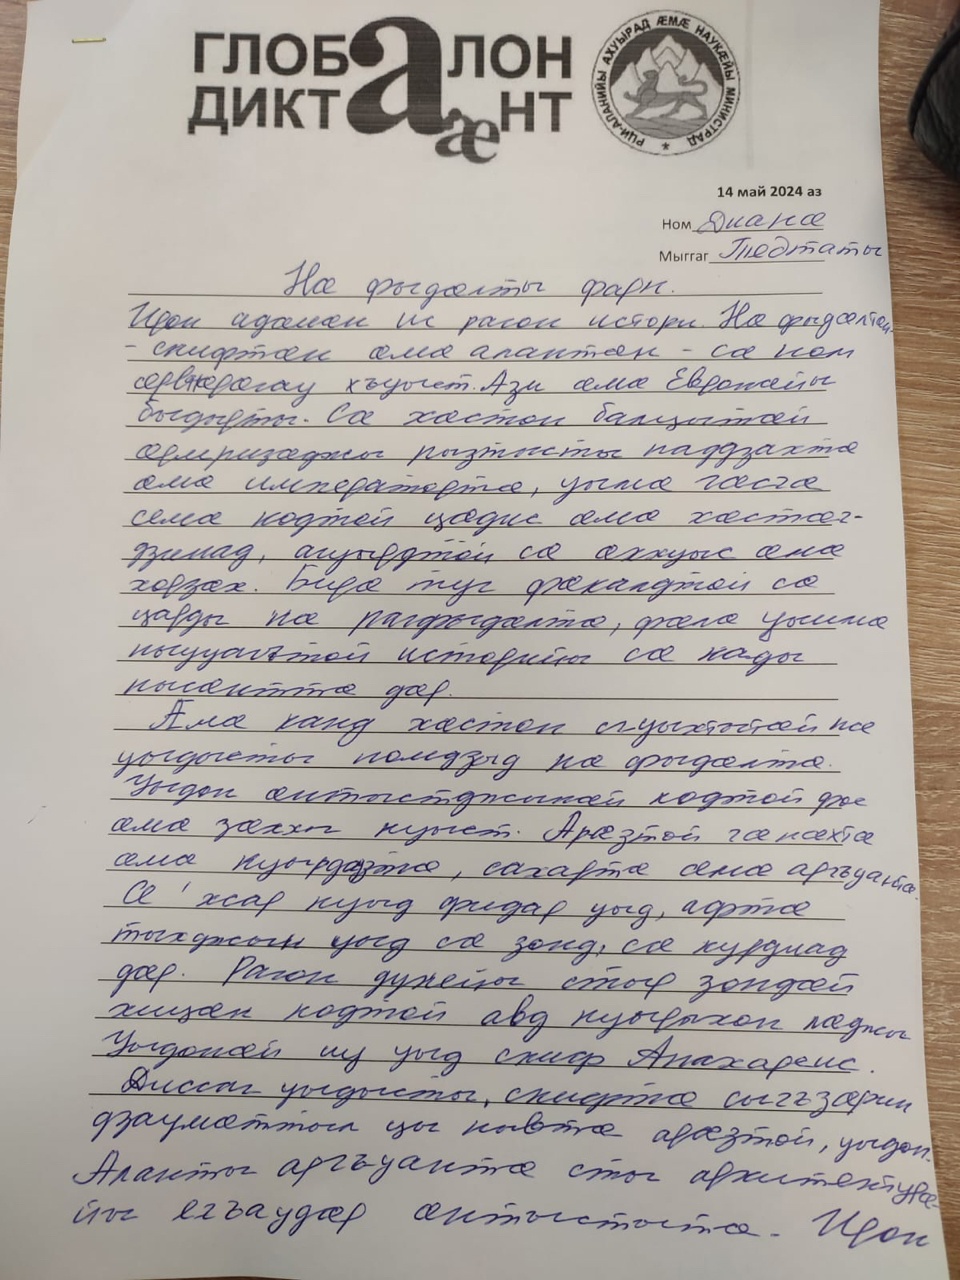 ГЛОБАЛОН
ДИКТАНТ
ææ
РЦИ-АЛАНИЙЫ АХУЫРАД ÆМÆ НАУКÆЙЫ МИНИСТРАД
14 май 2024 аз
Ном Дианæ
Мыггаг Тедтаты
Нæ фыдæлты фарн.
Ирон адæмæн ис рагон истори. Нæ фыдæлтæн
- скифтæн æмæ алантæн - сæ ном
æрвнæрæгау хъуыст. Ази æмæ Европæйы
быдырты. Сæ хæстон балцытæй
æмризæджы рызтысты паддзахтæ
æмæ императортæ, уымæ гæсгæ
семæ кодтой цæдис æмæ хæстæг-
дзинад, агуырдтой сæ æххуыс æмæ
хорзæх. Бирæ туг фæкалдтой сæ
царды нæ рагфыдæлтæ, фæлæ уыимæ
ныууагътой историйы сæ кады
нысæнттæ дæр.
Æмæ канд хæстон сгуыхтытæй нæ
уыдысты номдзыд нæ фыдæлтæ.
Уыдон æнтыстджынæй кодтой фос
æмæ зæххы куыст. Арæзтой гæнæхтæ
æмæ куырдæзтæ, сахартæ æмæ аргъуантæ.
Сæ 'хсар куыд фидар уыд, афтæ
тыхджын уыд сæ зонд, сæ курдиад
дæр. Рагон дунейы стыр зондæй
хицæн кодтой авд куырыхон лæджы
Уыдонæй иу уыд скиф Анахарсис.
Диссаг уыдысты, скифтæ сыгъзæрин
дзауматтыл цы нывтæ арæзтой, уыдон.
Аланты аргъуантæ сты архитектурæ-
йы егъаудæр æнтыстытæ. Ирон